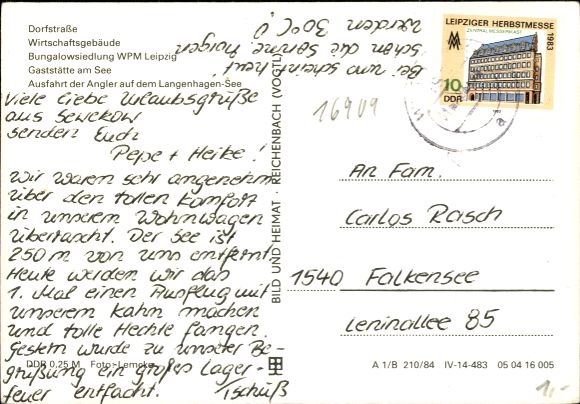 Dorfstraße
Wirtschaftsgebäude
Bungalowsiedlung WPM Leipzig
Gaststätte am See
Ausfahrt der Angler auf dem Langenhagen-See
Viele liebe Urlaubsgrüße
aus Sewekow
senden Euch
Pepe + Heike!
Wir waren sehr angenehm
über den tollen Komfort
in unserem Wohnwagen
überrascht. Der See ist
250 m von uns entfernt
Heute werden wir das
1. Mal einen Ausflug mit
unserem Kahn machen
und tolle Hechte fangen.
Gestern wurde zu unserer Be-
grüßung ein großes Lager-
feuer entfacht. Tschüß
Bei uns scheint heut
schon die Sonne, morgen
werden 30°C!
DDR 0,25 M Foto: Lemcke
BILD UND HEIMAT · REICHENBACH (VOGTL)
LEIPZIGER HERBSTMESSE
ZENTRAL-MESSEPALAST
1983
10
DDR
16909
An Fam.
Carlos Rasch
1540 Falkensee
Leninallee 85
A 1/B 210/84 IV-14-483 05 04 16 005
1,-